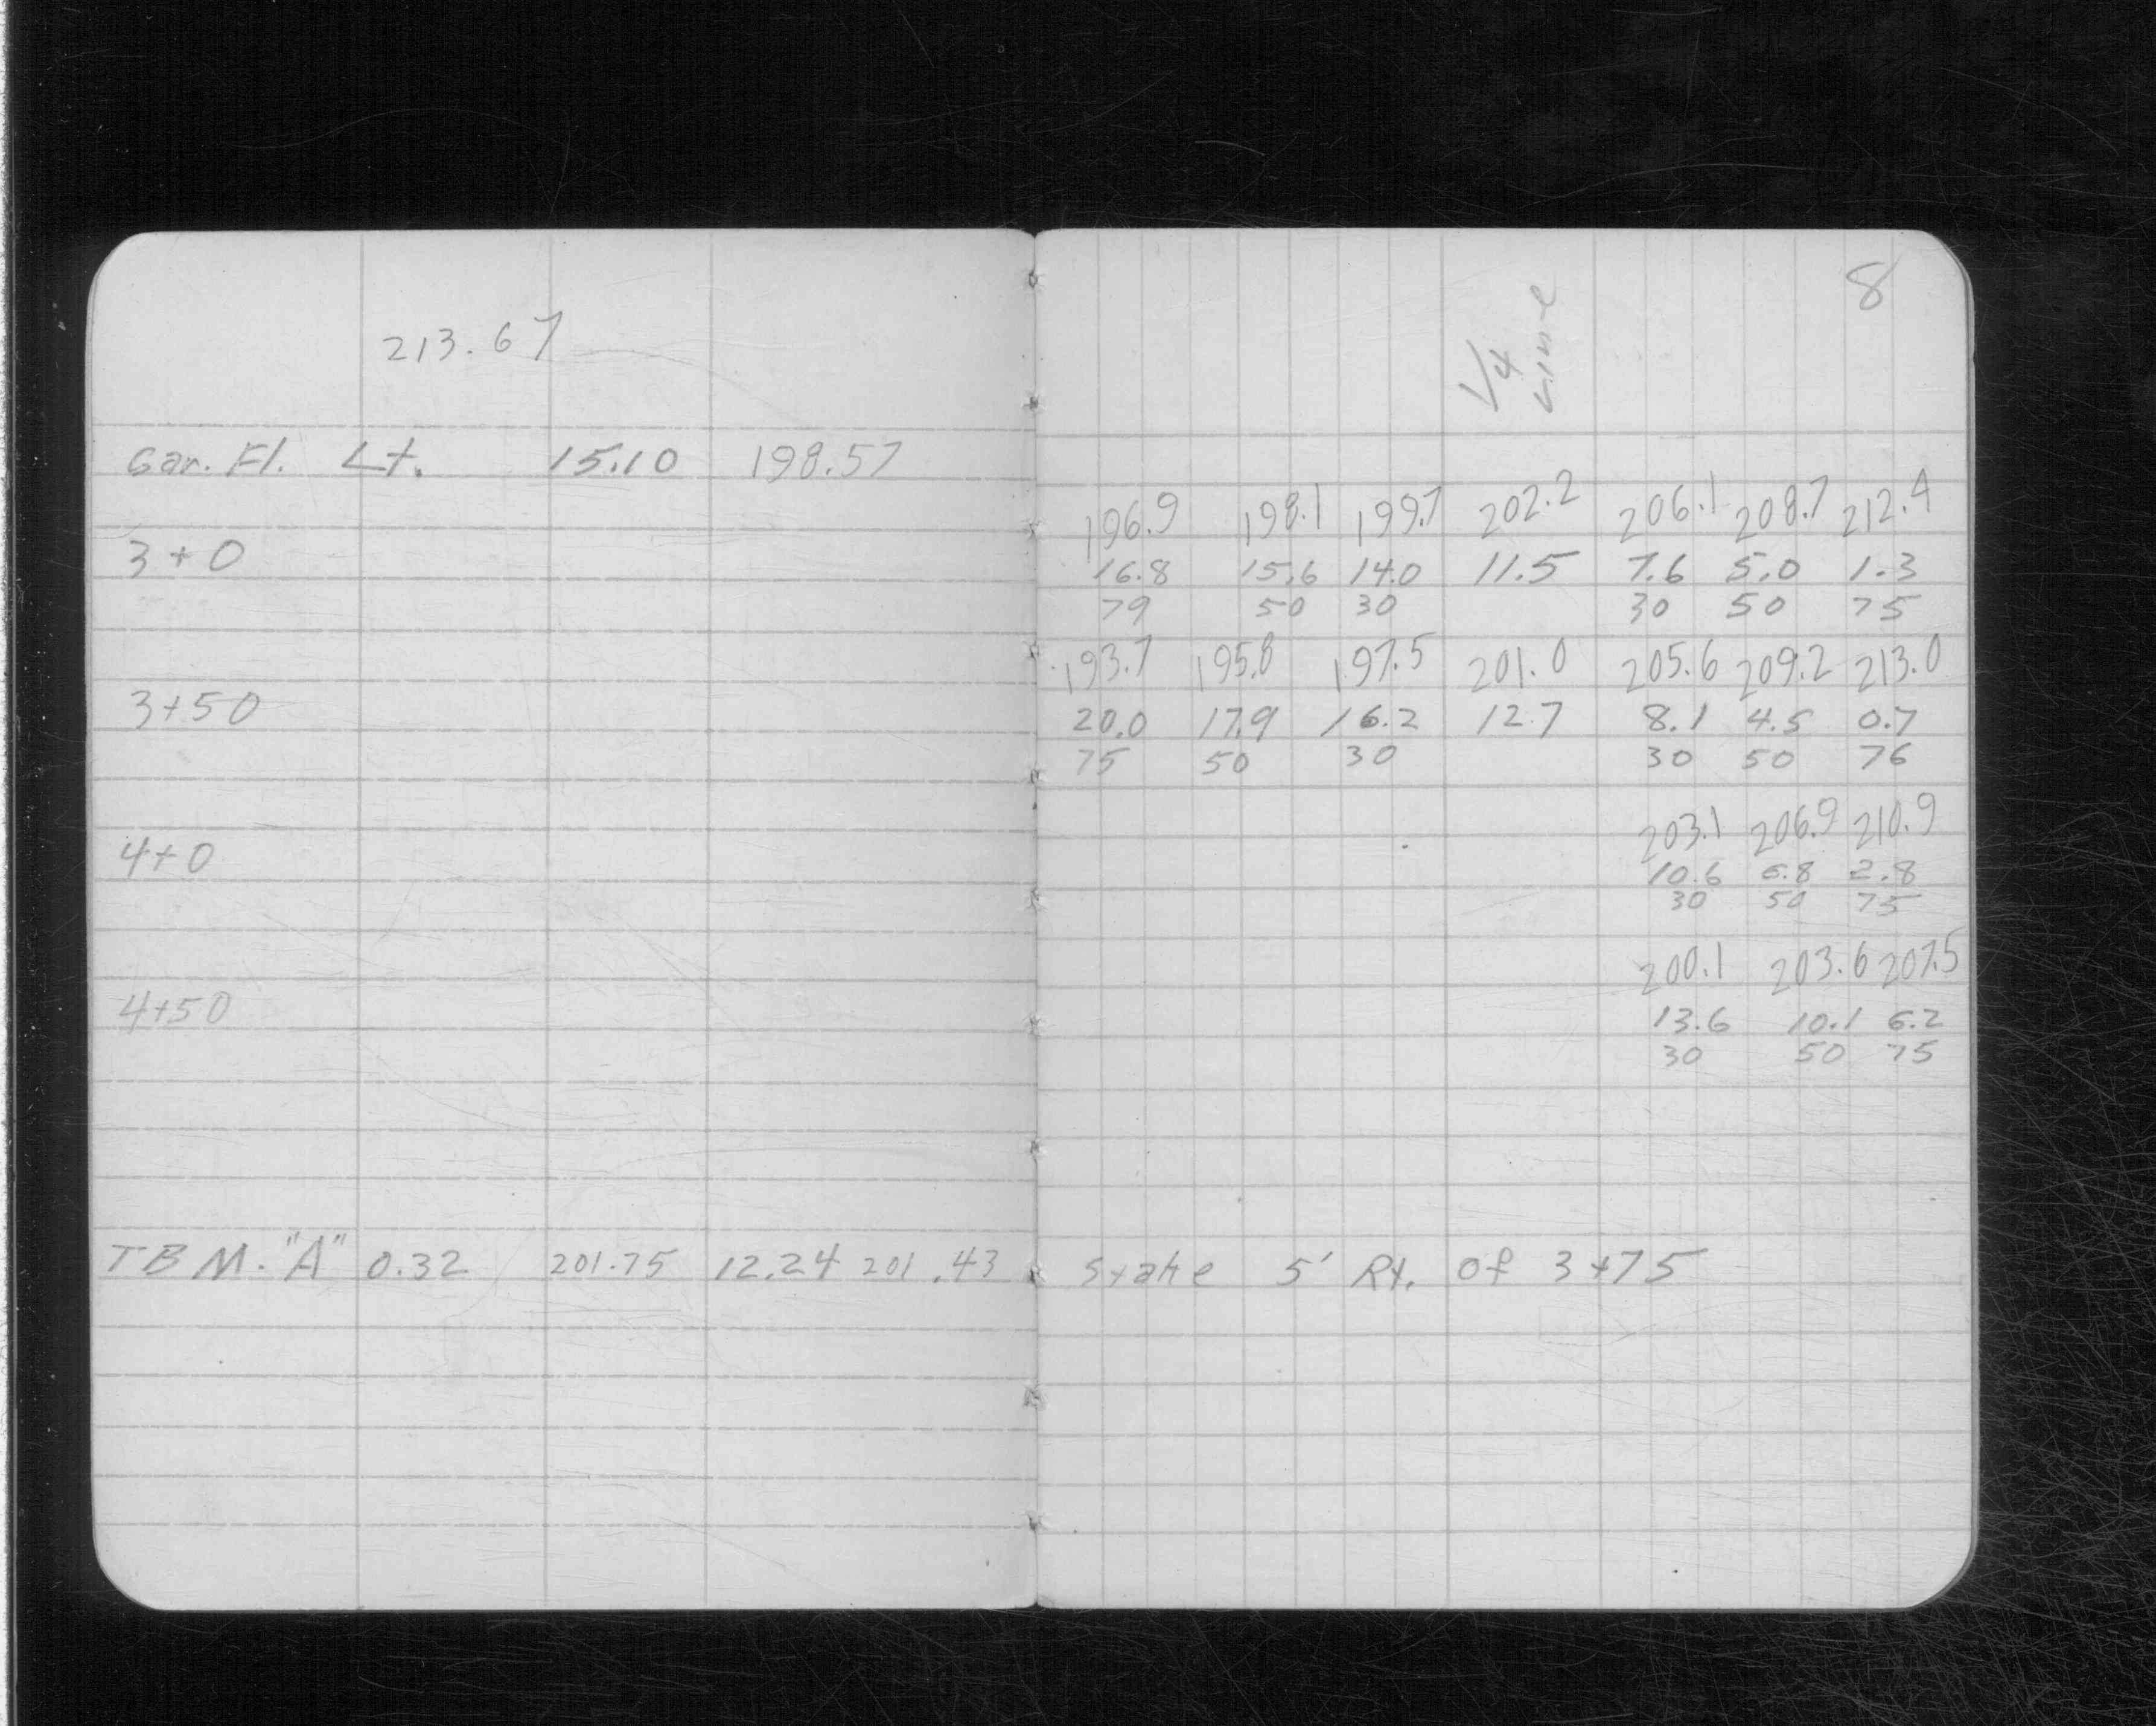 213.67
Gar. Fl. Lt. 15.10 198.57
3+0
3+50
4+0
4+50
TBM. "A" 0.32 201.75 12.24 201.43
8
1/4
Line
196.9 198.1 199.7 202.2 206.1 208.7 212.4
16.8 15.6 14.0 11.5 7.6 5.0 1.3
79 50 30 30 50 75
193.7 195.8 197.5 201.0 205.6 209.2 213.0
20.0 17.9 16.2 12.7 8.1 4.5 0.7
75 50 30 30 50 76
203.1 206.9 210.9
10.6 6.8 2.8
30 50 75
200.1 203.6 207.5
13.6 10.1 6.2
30 50 75
Stake 5' Rt. of 3+75